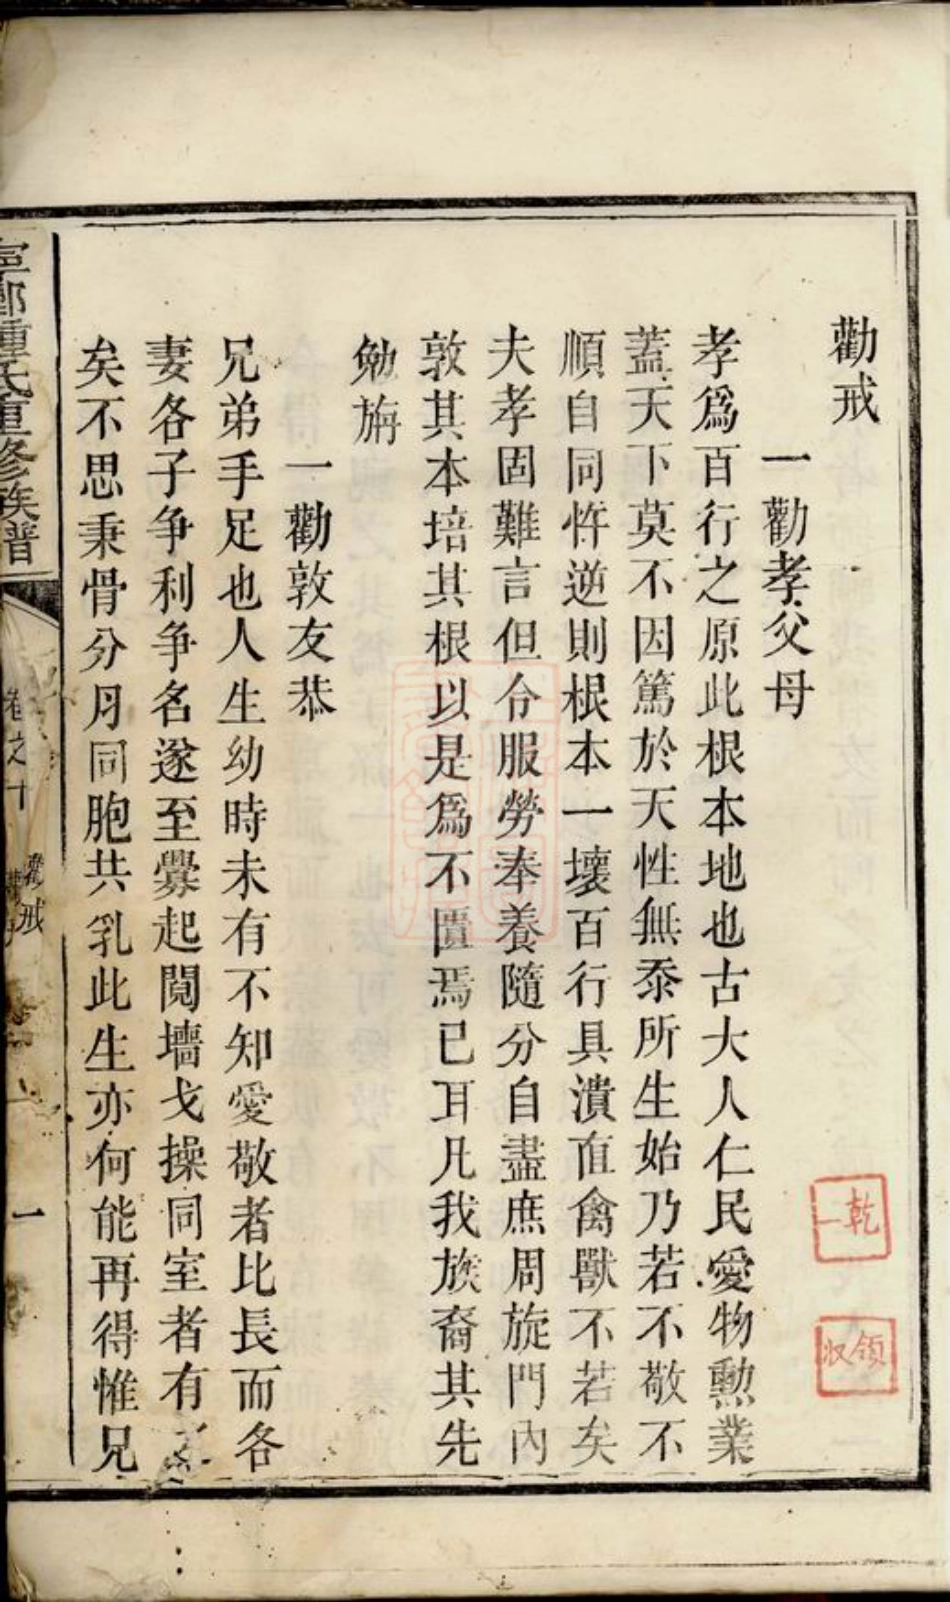 勸戒
一勸孝父母
孝爲百行之原此根本地也古大人仁民愛物勲業
蓋天下莫不因篤於天性無忝所生始乃若不敬不
順自同忤逆則根本一壞百行具潰直禽獸不若矣
夫孝固難言但令服勞奉養隨分自盡庶周旋門內
敦其本培其根以是爲不匱焉已耳凡我族裔其先
勉旃
一勸敦友恭
兄弟手足也人生幼時未有不知愛敬者比長而各
妻各子争利争名遂至釁起鬩墻戈操同室者有之
矣不思秉骨分月同胞共乳此生亦何能再得惟兄
寧鄉鍾氏重修族譜
卷之十
勸戒
一
乾一
領收